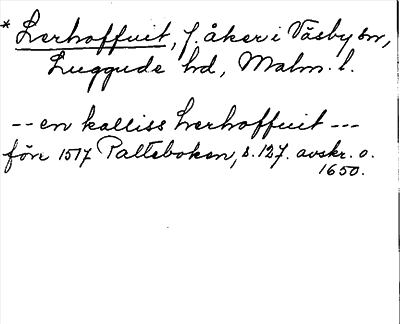 * Lerhoffuit, f. åker i Väsby sn,
Luggude hd, Malm. l.
-- en kalliss Lerhoffuit ---
före 1517 Palteboken, s. 127. avskr. o.
1650.